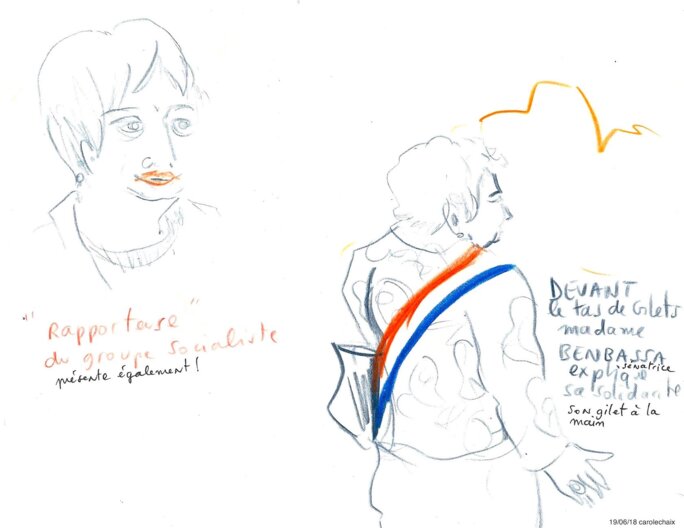 "Rapporteuse"
du groupe socialiste
présente également !
DEVANT
le tas de Gilets
madame
BENBASSA
sénatrice
explique
sa solidarité
son gilet à la
main
19/06/18 carolechaix